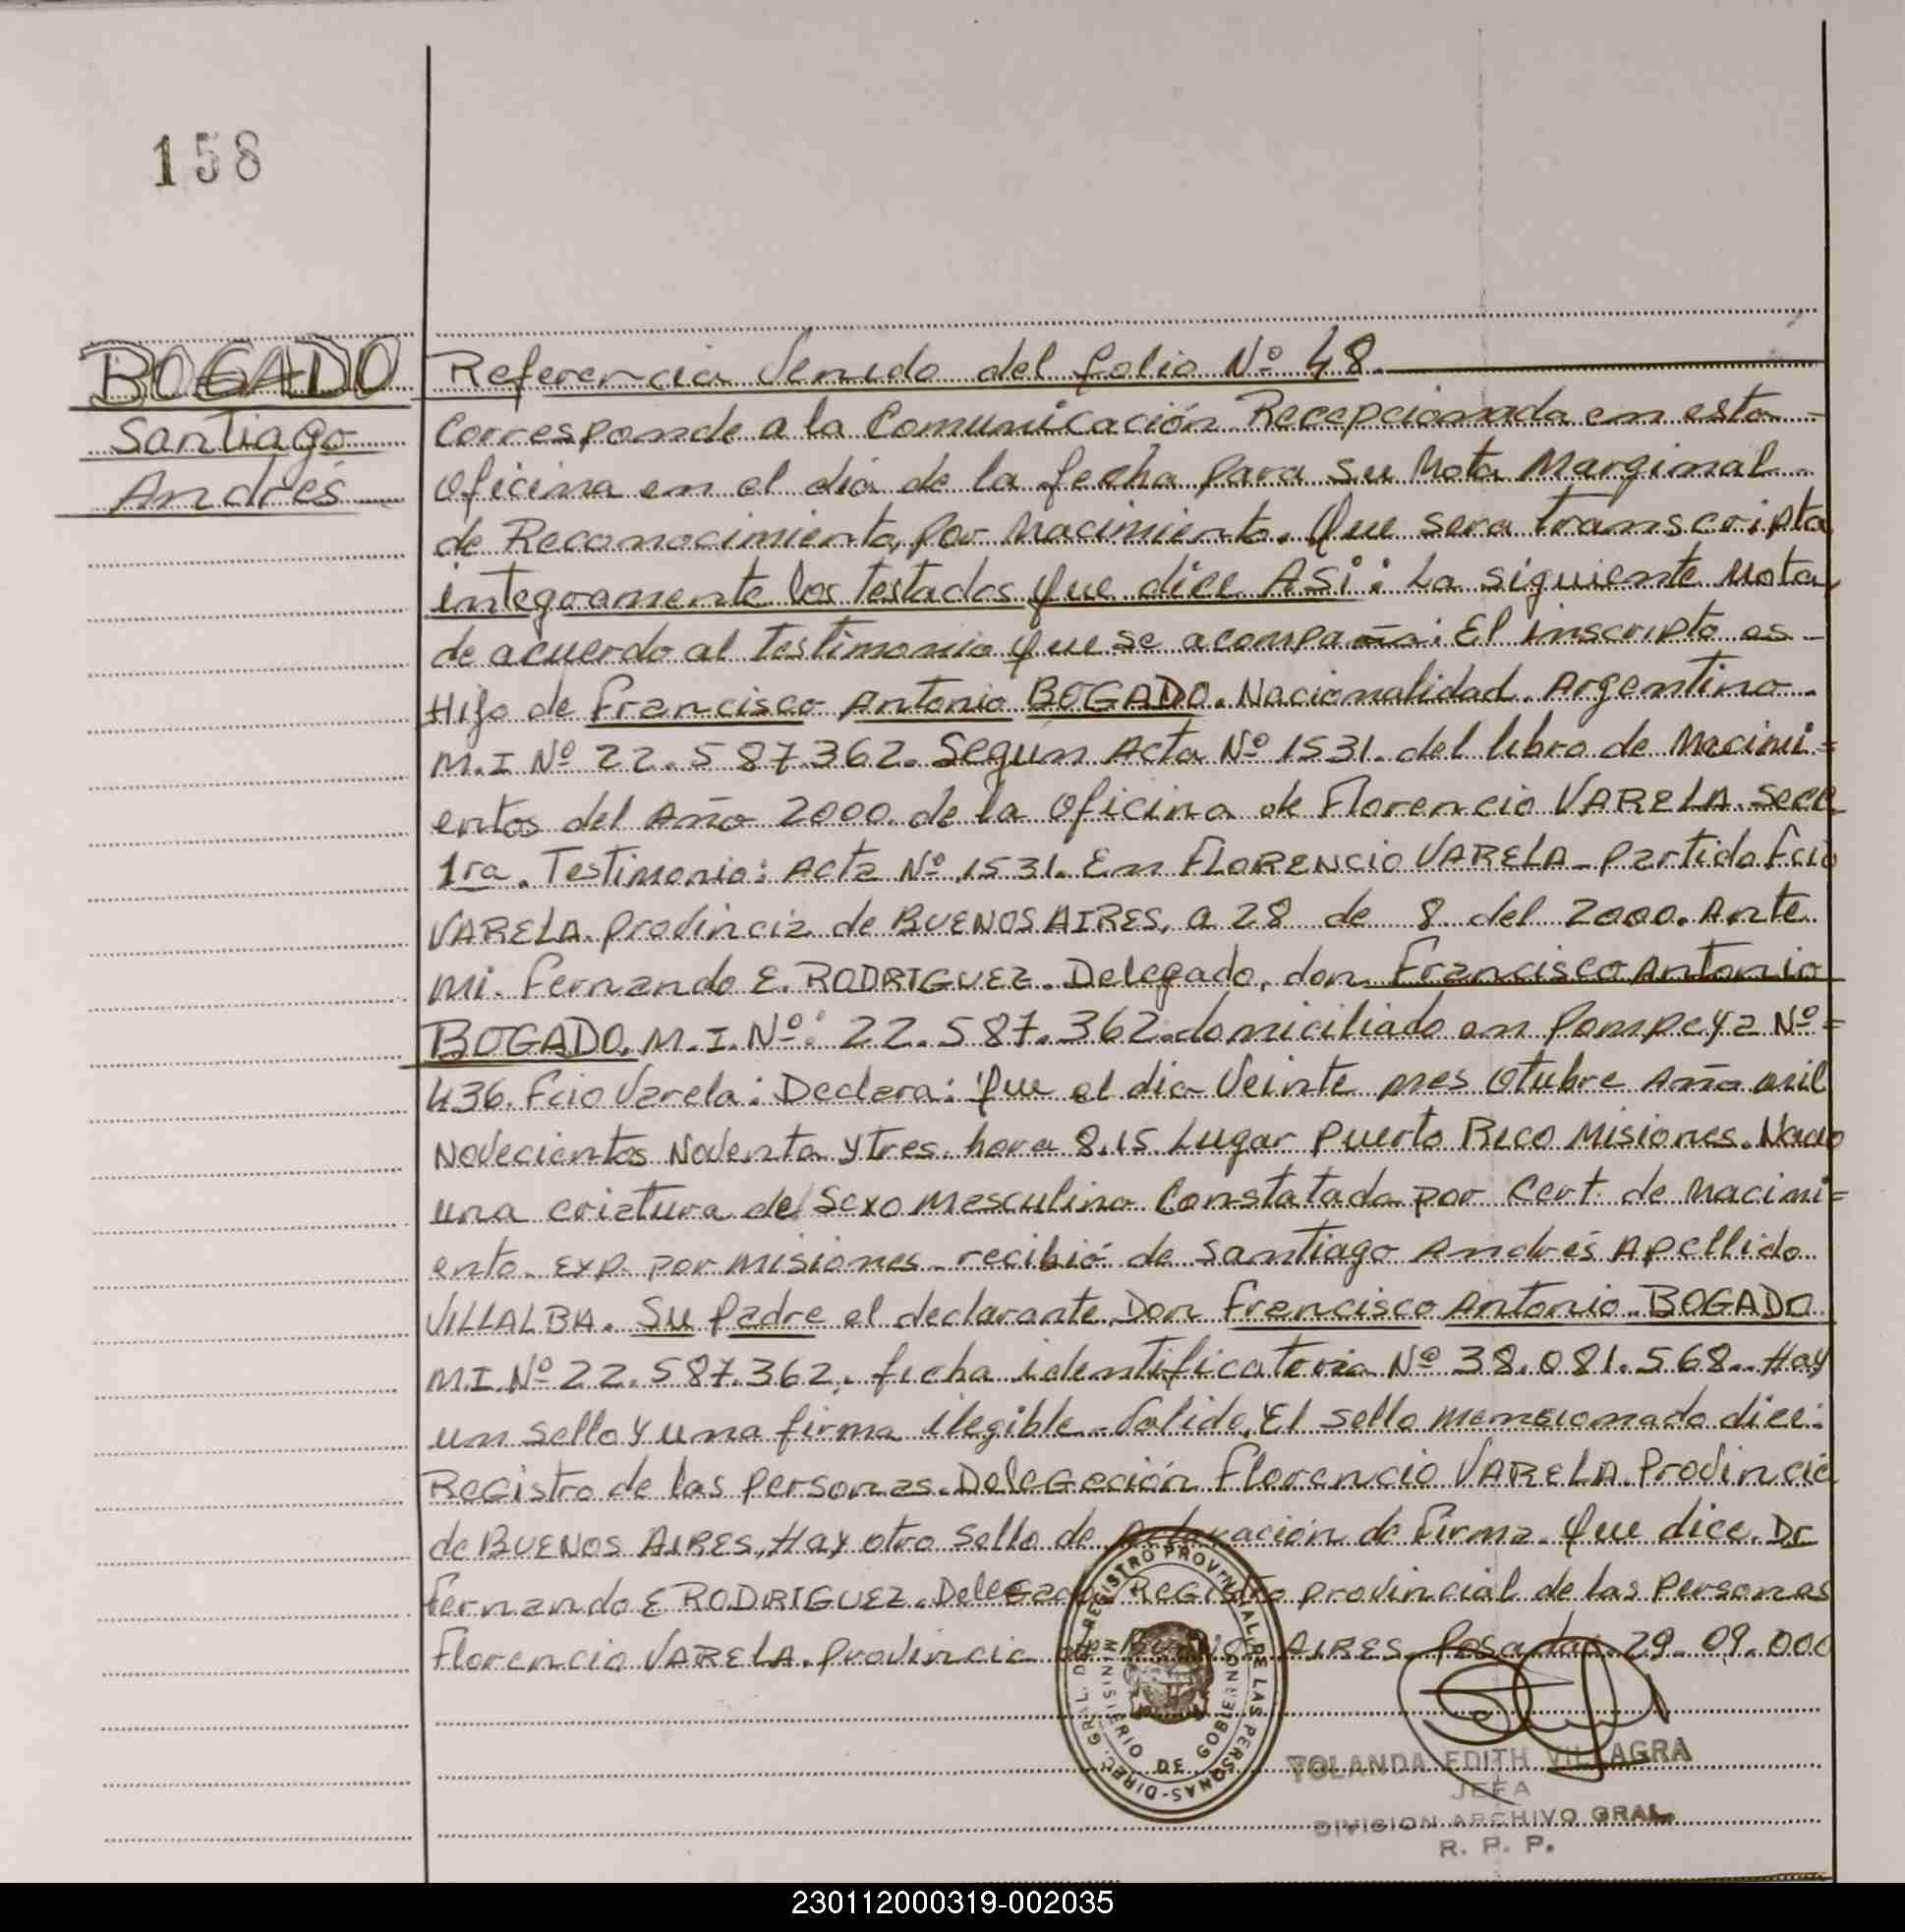 158
BOGADO
Santiago
Andrés
Referencia Venido del folio Nº 48.
Corresponde a la Comunicación Recepcionada en esta
Oficina en el día de la fecha para su Nota Marginal
de Reconocimiento, por Nacimiento. Que sera transcripta
integramente los testados que dice ASi: La siguiente nota,
de acuerdo al testimonio que se acompaña: El inscripto es
Hijo de Francisco Antonio BOGADO. Nacionalidad Argentino.
M.I Nº 22.587.362. Segun Acta Nº 1531. del libro de Nacimi=
entos del Año 2000. de la Oficina de Florencio VARELA. Secc.
1ra. Testimonio: Acta Nº 1531. En FLORENCIO VARELA - Partido Fcio
VARELA. Provincia de BUENOS AIRES, a 28 de 8 del 2000. Ante
mi. Fernando E. RODRIGUEZ. Delegado, don Francisco Antonio
BOGADO. M.I. Nº: 22.587.362. domiciliado en Pompeya Nº=
436. Fcio Varela: Declara: Que el dia Veinte mes Otubre Año mil
Novecientos Noventa y tres. hora 8.15 Lugar Puerto Rico Misiones. Nacio
una criatura del Sexo Masculino Constatada por Cert. de Nacimi=
ento. Exp. por Misiones - recibió de Santiago Andrés Apellido
VILLALBA. Su Padre el declarante Don Francisco Antonio BOGADO
M.I. Nº 22.587.362. ficha identificatoria Nº 38.081.568. Hay
un sello y una firma ilegible - Valido. El sello mencionado dice:
Registro de las personas. Delegación Florencio VARELA. Provincia
de BUENOS AIRES, Hay otro Sello de Aclaración de firma. Que dice. Dr
Fernando E RODRIGUEZ. Delegado Registro provincial de las Personas
Florencio VARELA. Provincia de Buenos AIRES. Posadas. 29-09.000
DIREC. GRAL. DEL REGISTRO PROVINCIAL DE LAS PERSONAS
MINISTERIO DE GOBIERNO
YOLANDA EDITH VILLAGRA
JEFA
DIVISION ARCHIVO GRAL.
R. P. P.
230112000319-002035